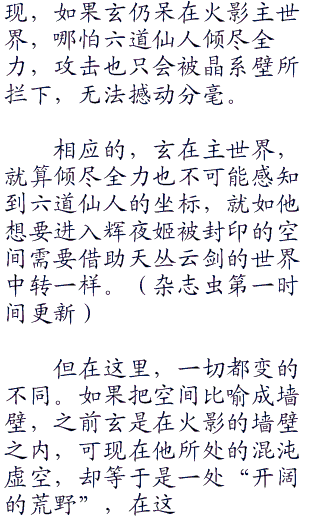 现，如果玄仍呆在火影主世
界，哪怕六道仙人倾尽全
力，攻击也只会被晶系壁所
拦下，无法撼动分毫。
相应的，玄在主世界，
就算倾尽全力也不可能感知
到六道仙人的坐标，就如他
想要进入辉夜姬被封印的空
间需要借助天丛云剑的世界
中转一样。（杂志虫第一时
间更新）
但在这里，一切都变的
不同。如果把空间比喻成墙
壁，之前玄是在火影的墙壁
之内，可现在他所处的混沌
虚空，却等于是一处“开阔
的荒野”，在这